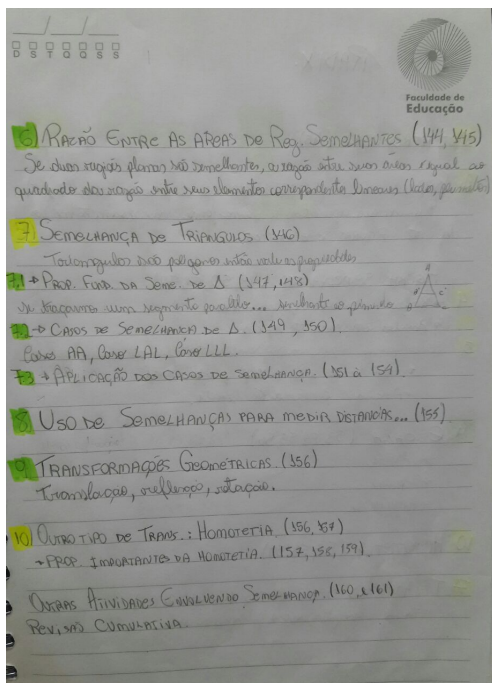 D S T Q Q S S
Faculdade de
Educação
6) RAZÃO ENTRE AS AREAS DE Reg. SEMELHANTES (144, 145)
Se duas regiões planas são semelhantes, a razão entre suas áreas é igual ao
quadrado da razão entre seus elementos correspondentes lineares (lados,
7) SEMELHANÇA DE TRIANGULOS (146)
Todo triangulos são poligonos então vale as propriedades
7.1 → PROP. FUND. DA SEME. DE Δ (147, 148)
se traçarmos um segmento paralelo... semelhante ao primeiro
7.2 → CASOS DE SEMELHANÇA DE Δ. (149, 150).
Caso AA, Caso LAL, Caso LLL.
7.3 → APLICAÇÃO DOS CASOS DE SEMELHANÇA. (151 à 154).
8) USO DE SEMELHANÇAS PARA MEDIR DISTANCIAS... (155)
9) TRANSFORMAÇÕES GEOMÉTRICAS (156)
Translaçao, reflexão, rotação.
10) OUTRO TIPO DE TRANS.: HOMOTETIA (156, 157)
→ PROP. IMPORTANTES DA HOMOTETIA. (157, 158, 159).
OUTRAS ATIVIDADES ENVOLVENDO SEMELHANÇA. (160, e 161)
REVISÃO CUMULATIVA.